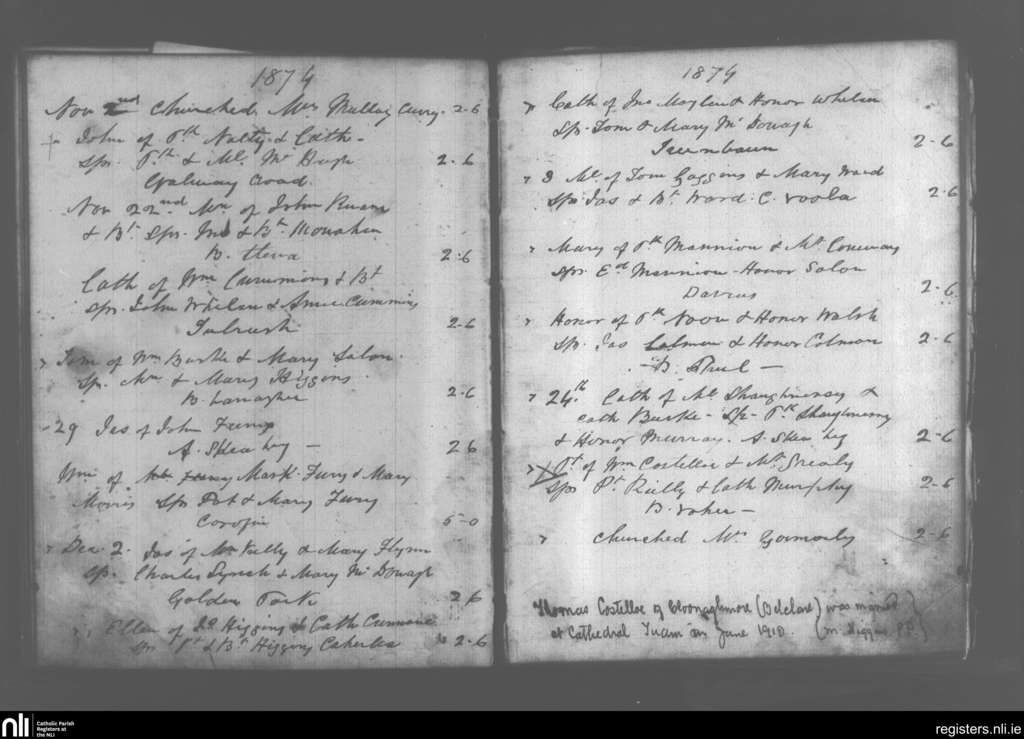 1874
Nov 2nd Churched Mrs Mullay Curry. 2-6
+ John of Ptk Nalty & Cath -
Sps. Ptk & Ml. Mc Hugh 2-6
Galway road.
Nov 22nd Wm of John Ruane
& Bt Sps. Jno & Bt Monahan
B. 2-6
Cath of Wm Cummins & Bt
Sps. John Whelan & Anne Cummins
Tulrush 2-6
Tom of Wm Burke & Mary Silon.
Sps. Wm & Mary Higgons.
B. Lanagher 2-6
29 Jas of John Furey
A. Skea hy - 2 6
Wm of Mark Fury & Mary
Morris Sps Pat & Mary Fury
Corofin 5-0
Dec. 2. Jas of Wm Kielly & Mary Flynn
Sps. Charles Lynch & Mary Mc Donagh
Golden Park 2 6
" Ellen of Higgins & Cath Cunnane
Sps Pt & Bt Higgins 2-6
1874
Cath of Jno & Honor Whelan
Sps. Tom & Mary Mc Donagh
2-6
3 Ml. of Tom Goggons & Mary Ward
Sps. Jas & Bt. Ward. C. voola 2-6
Mary of Ptk Mannion & Mt. Conway
Sps. Ed Mannion - Honor Salon
Darrus 2-6
Honor of Ptk Noon & Honor Walsh
Sps. Jas Colman & Honor Colman 2-6
- B. Phul -
24th Cath of Ml Shaughnessy &
Cath Burke - Sps - Ptk Shaughnessy
& Honor Murray. A. Skea hy 2-6
X Pt. of Wm Costelloe & Mt. Grealy
Sps Pt. Reilly & Cath Murphy 2-6
B. vaher -
Churched Mrs Gormorly 2-6
Thomas Costelloe of Cloonaghmore (Belclare) was married
at Cathedral Tuam on June 1910. (M. Higgins P.P.)
nli Catholic Parish
Registers at
the NLI
registers.nli.ie